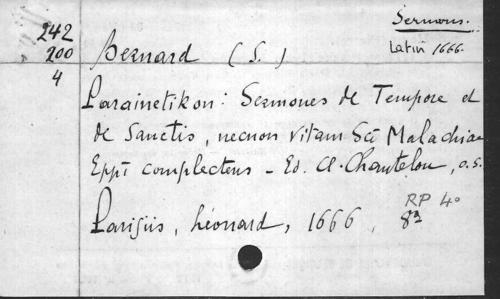 Sermons.
242
200
4
Bernard (S.)
Latin 1666.
Parainetikon: Sermones de Tempore et
de Sanctis, necnon vitam Sci Malachiae
Eppi complectens - Ed. Cl. Chantelou, o.s.
RP 4º
Parisiis, Léonard, 1666, 8º